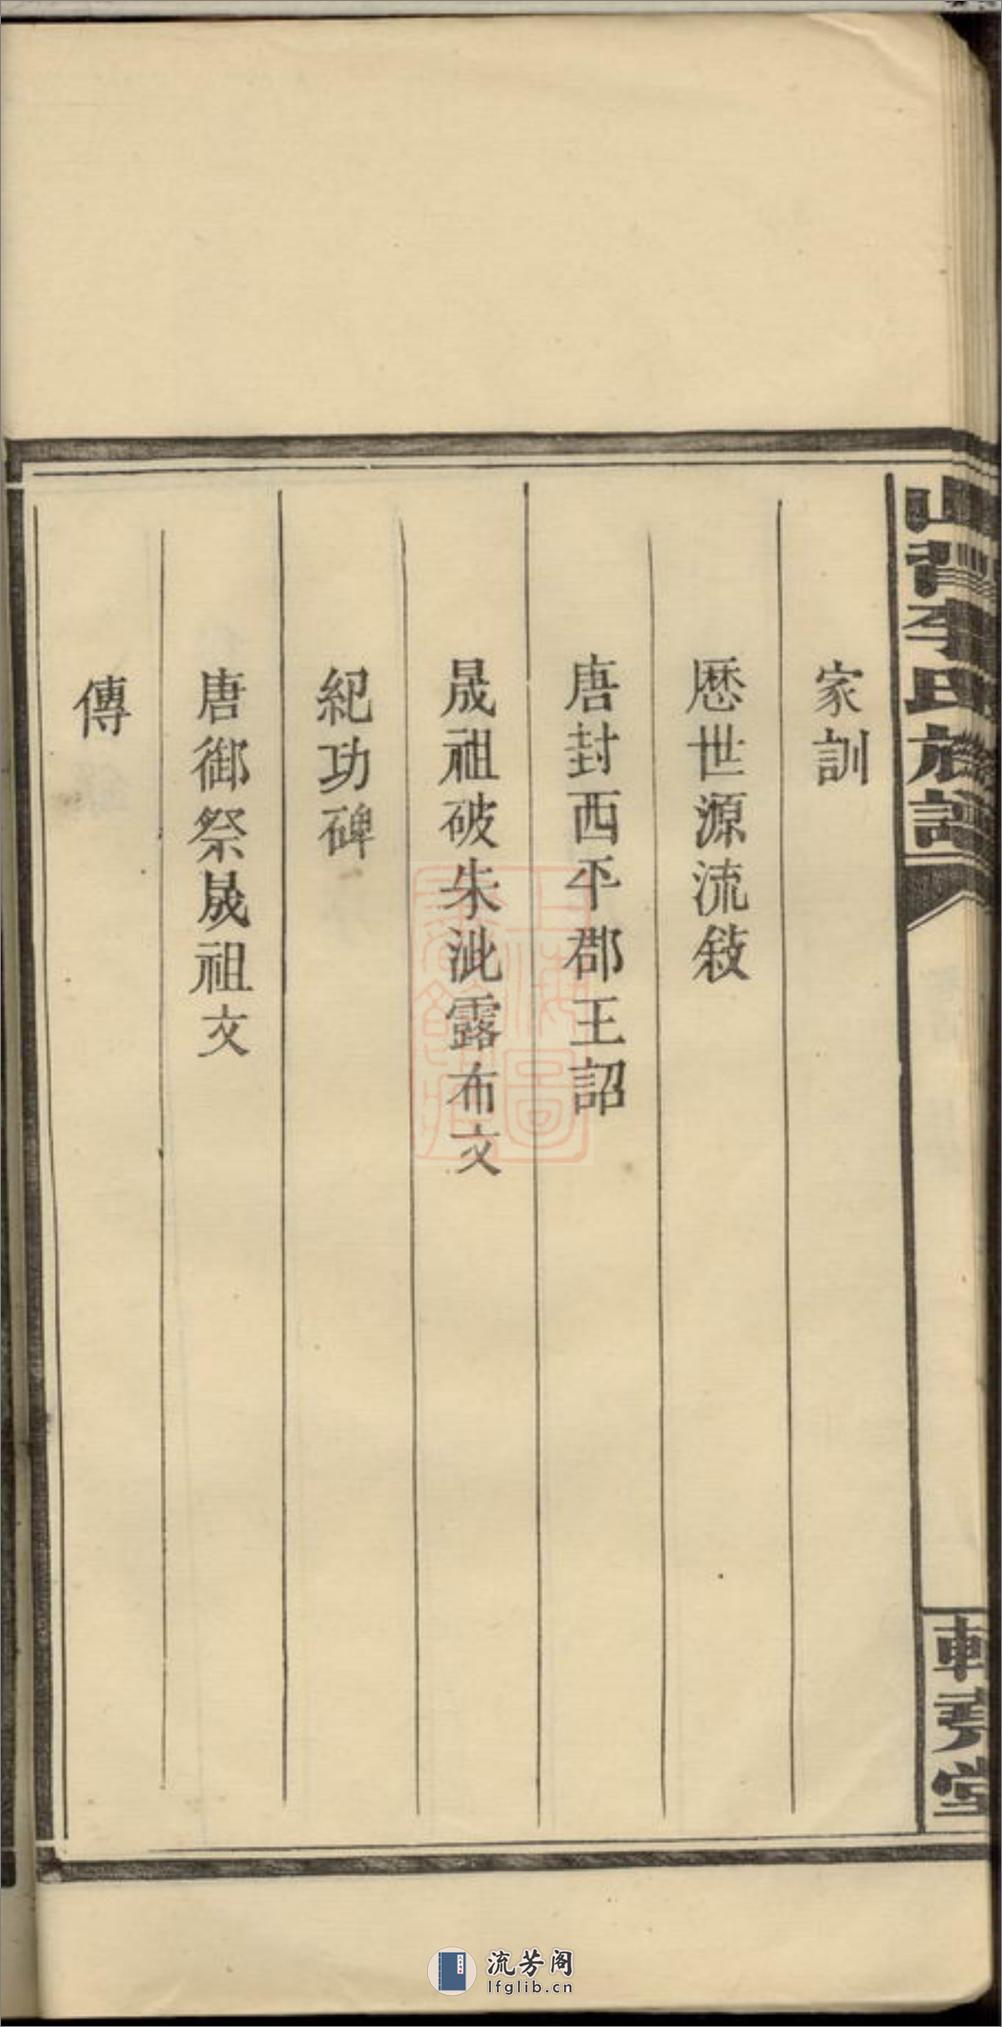 家訓
歴世源流敍
唐封西平郡王詔
晟祖破朱泚露布文
紀功碑
唐御祭晟祖文
傳
李氏族譜
堂
上海圖
流芳阁
lfglib.cn